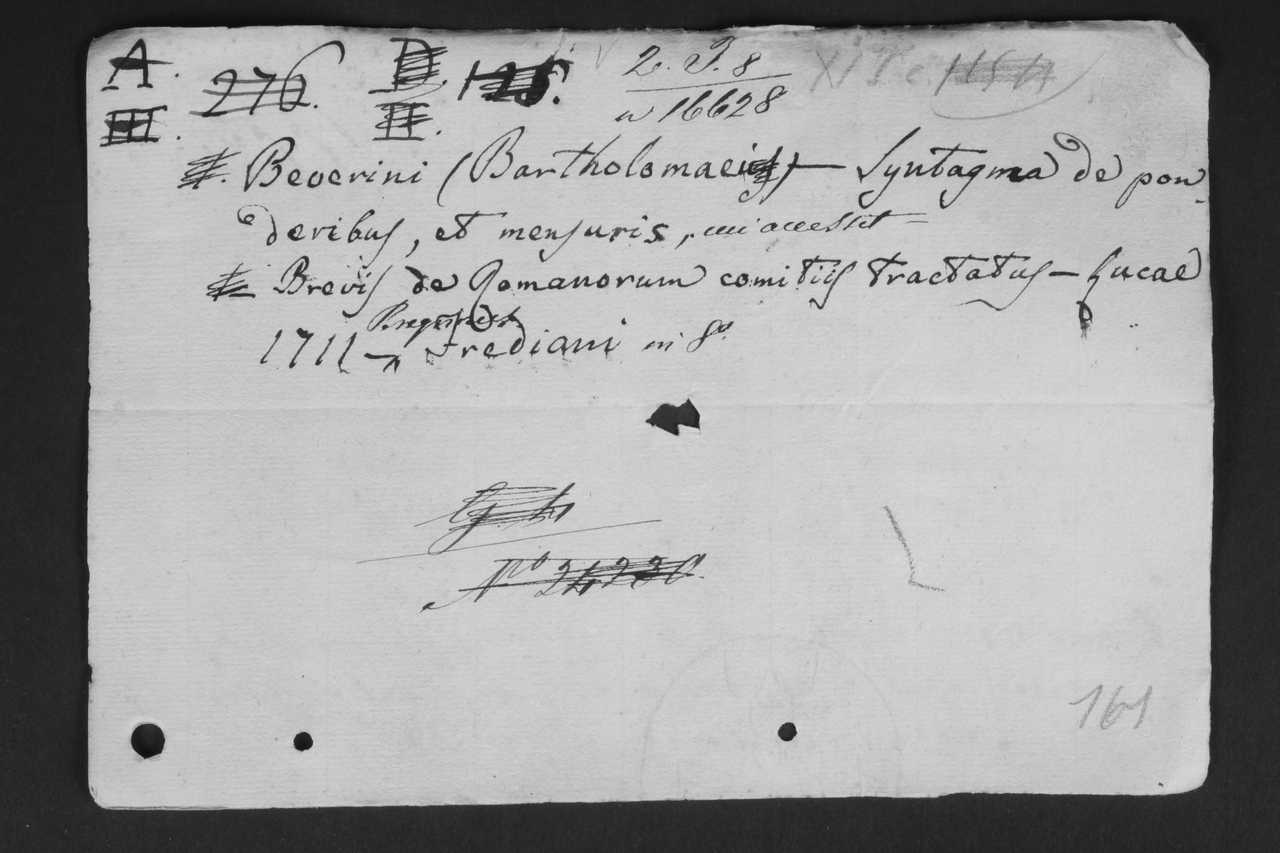 A. 276. D. 125. 2. P. 8 XI
III. II. a 16628
Beverini (Bartholomaei) — Syntagma de pon
deribus, et mensuris, cui accessit =
Brevis de Romanorum comitiis tractatus — Lucae
1711 — Frediani in 8º
Nº 24230.
161